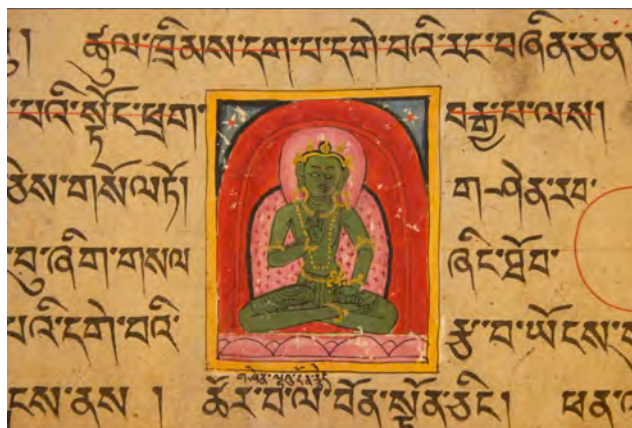 ཚུལ་ཁྲིམས་དག་པ་དགེ་བའི་རང་བཞིན་ཅན་
པའི་སྟོང་ཕྲག་ བརྒྱ་པ་ལས།
ཅེས་གསོལ་ཏོ། ག-ཤེན་རབ་
བུ་ཞིག་གསལ ཞིང་ཐོབ་
པའི་དགེ་བའི་ རྩ་བ་ཡོངས་
ངས་ནས ། ཚོར་བ་ལ་བོན་སྟོན་ཅིང་། ཕན་